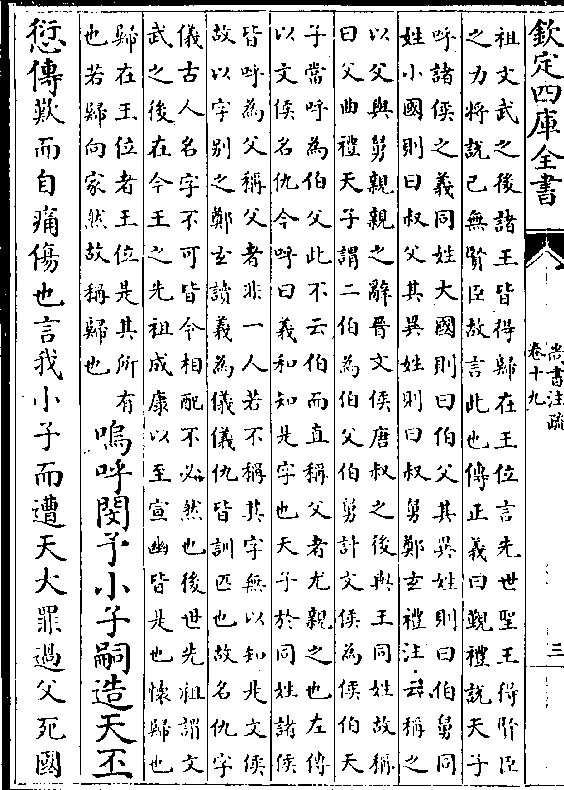 欽定四庫全書
尚書注疏
卷十九
三
祖文武之後諸王皆得歸在王位言先世聖王得賢臣
之力將說己無賢臣故言此也傳正義曰覲禮說天子
呼諸侯之義同姓大國則曰伯父其異姓則曰伯舅同
姓小國則曰叔父其異姓則曰叔舅鄭玄禮注云稱之
以父與舅親親之辭晉文侯唐叔之後與王同姓故稱
曰父曲禮天子謂二伯為伯父伯舅計文侯為侯伯天
子當呼為伯父此不云伯而直稱父者尤親之也左傳
以文侯名仇今呼曰義和知是字也天子於同姓諸侯
皆呼為父稱父者非一人若不稱其字無以知是文侯
故以字別之鄭玄讀義為儀儀仇皆訓匹也故名仇字
儀古人名字不可皆令相配不必然也後世先祖謂文
武之後在今王之先祖成康以至宣幽皆是也懷歸也
歸在王位者王位是其所有
也若歸向家然故稱歸也
嗚呼閔予小子嗣造天丕
愆傳歎而自痛傷也言我小子而遭天大罪過父死國